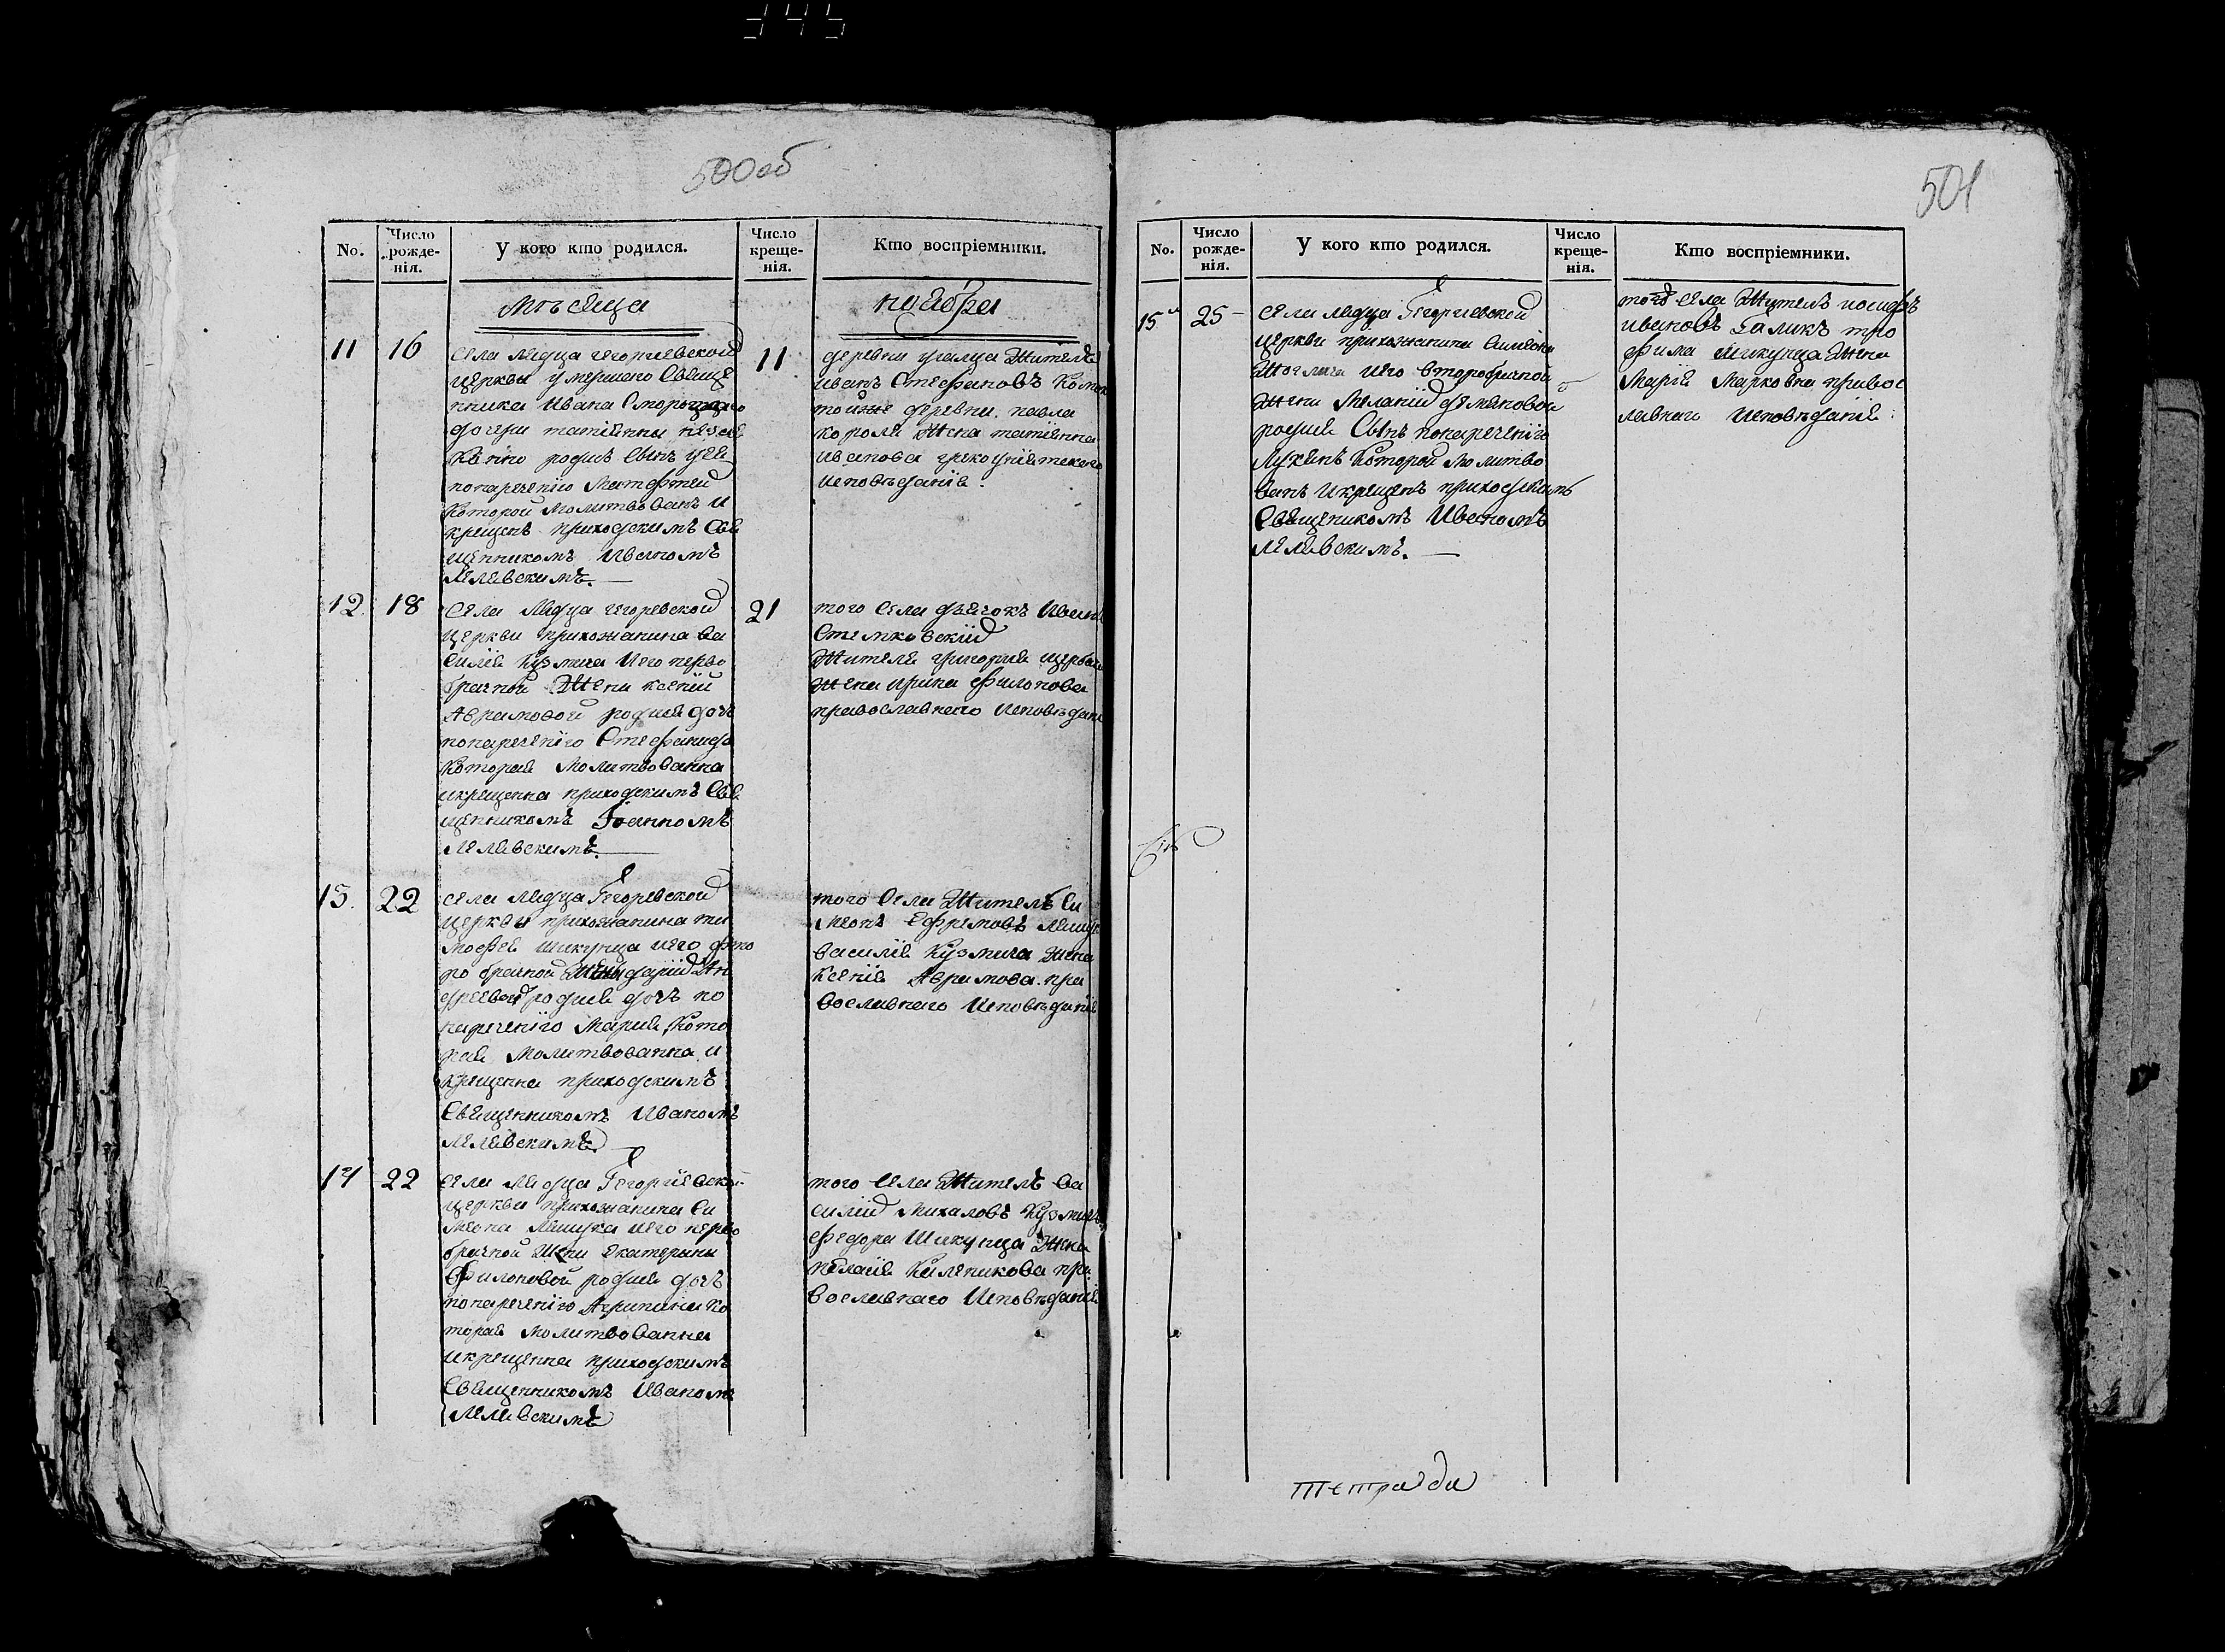 500об
No.
Число рожде- нія.
У кого кто родился.
Число креще- нія.
Кто воспріемники.
мѣсяца
ноября
11
16
села Лядца Гегоргиевской
церкви умершего Свяще
нника Ивана
дочери татіянны
родила Сынъ
понаречению Матфтей
которой молитвованъ и
крещенъ приходскимъ Свя
щенникомъ Иваномъ
Лелявскимъ.
11
деревни Жителъ
Иванъ Стефановъ
тойже деревни павла
короля Жена татіянна
Иванова грекоуніятского
исповѣданія.
12
18
села Лядца Гегоревской
церкви прихожанина Ва
силія Кузмича Иего перво
брачной Жени ксеніи
Аврамовой родила дочъ
понаречению Стефанида
которая Молитвованна
икрещенна приходскимъ Свя
щенникомъ Іоанномъ
Лелявскимъ.
21
того села дячокъ Иванъ
Стемковскій
Жителя григория
Жена ирина Филонова
православного Исповѣдания
13.
22
села Лядца Гегоревской
церкви прихожанина ти
мофея шикунца иего
ро брачной Жены даріи Ан
дреевой родила дочъ по
наречению Мария, кото
рая Молитвованна и
крещенна приходскимъ
Священникомъ Иваномъ
Лелявскимъ
того Села Жителъ Си
меонъ Ефремовъ
василія Кузмича Жена
Ксенія Аврамова пра
вославного Исповѣданія
14
22
села Лядца Гегоргіевской
церкви прихожанина Си
меона иего перво
брачной Жени Екатерины
Филоновой родила дочъ
понаречению Агрипина ко
торая молитвованна
икрещенна приходскимъ
Священникомъ Иваномъ
Лелявскимъ
того Села Жителъ Ва
силій Михаловъ Кузмичъ
Федора Шикунца Жена
пра
вославного Исповѣданія
501
No.
Число рожде- нія.
У кого кто родился.
Число креще- нія.
Кто воспріемники.
15
25
села Лядца Гегоргиевской
церкви прихожанина Симеона
иего второбрачной
Жени Меланіи демяновой
родила Сынъ понаречению
Лукянъ Которой молитво
ванъ икрещенъ приходскимъ
Священикомъ Иваномъ
Лелявскимъ.
того села Жителъ иосифъ
ивановъ Галикъ тро
фима шикунца Жена
Марія Марковна правос
лавнаго исповѣданія
тетрада